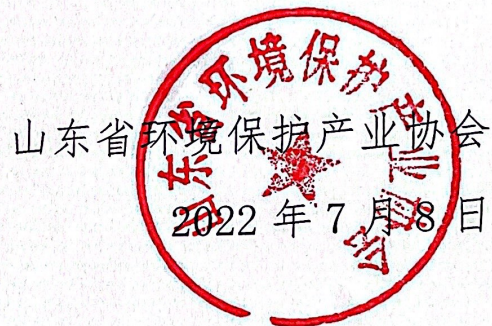 山东省环境保护产业协会
2022年7月8日
山东省环境保护产业协会